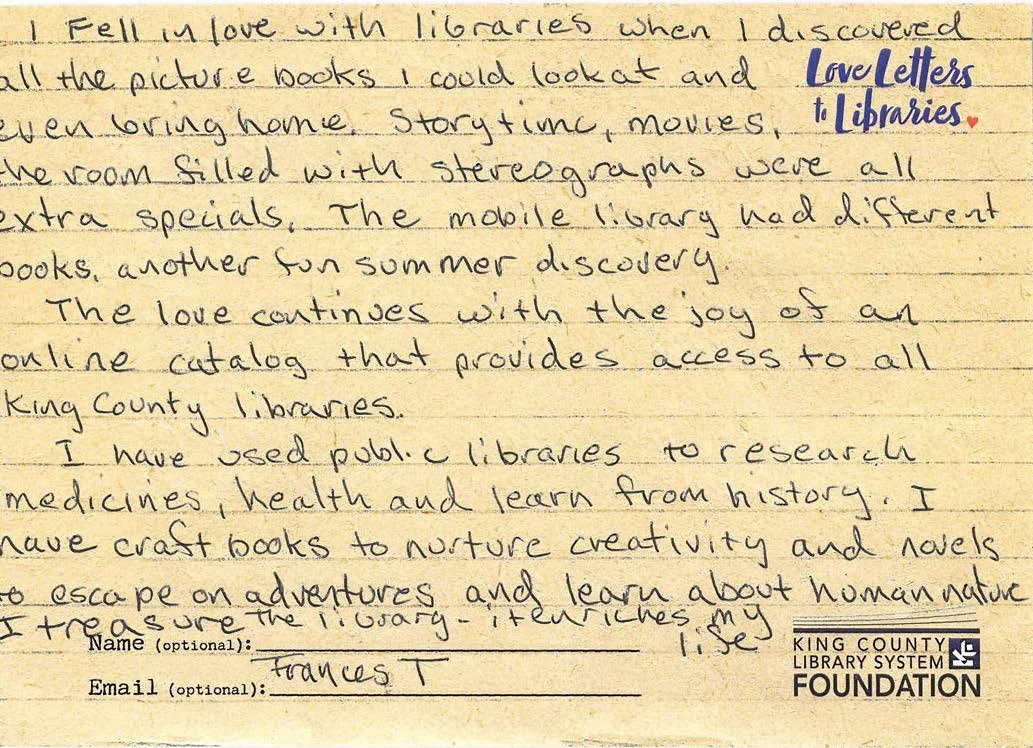 I Fell in love with libraries when I discovered
all the picture books I could look at and
even bring home. Storytime, movies,
the room filled with stereographs were all
extra specials. The mobile library had different
books, another fun summer discovery.
The love continues with the joy of an
online catalog that provides access to all
King County libraries.
I have used public libraries to research
medicines, health and learn from history. I
have craft books to nurture creativity and novels
to escape on adventures and learn about human nature
I treasure the library - it enriches my
life
Love Letters
to Libraries.
Name (optional):
Frances T
Email (optional):
KING COUNTY
LIBRARY SYSTEM
FOUNDATION